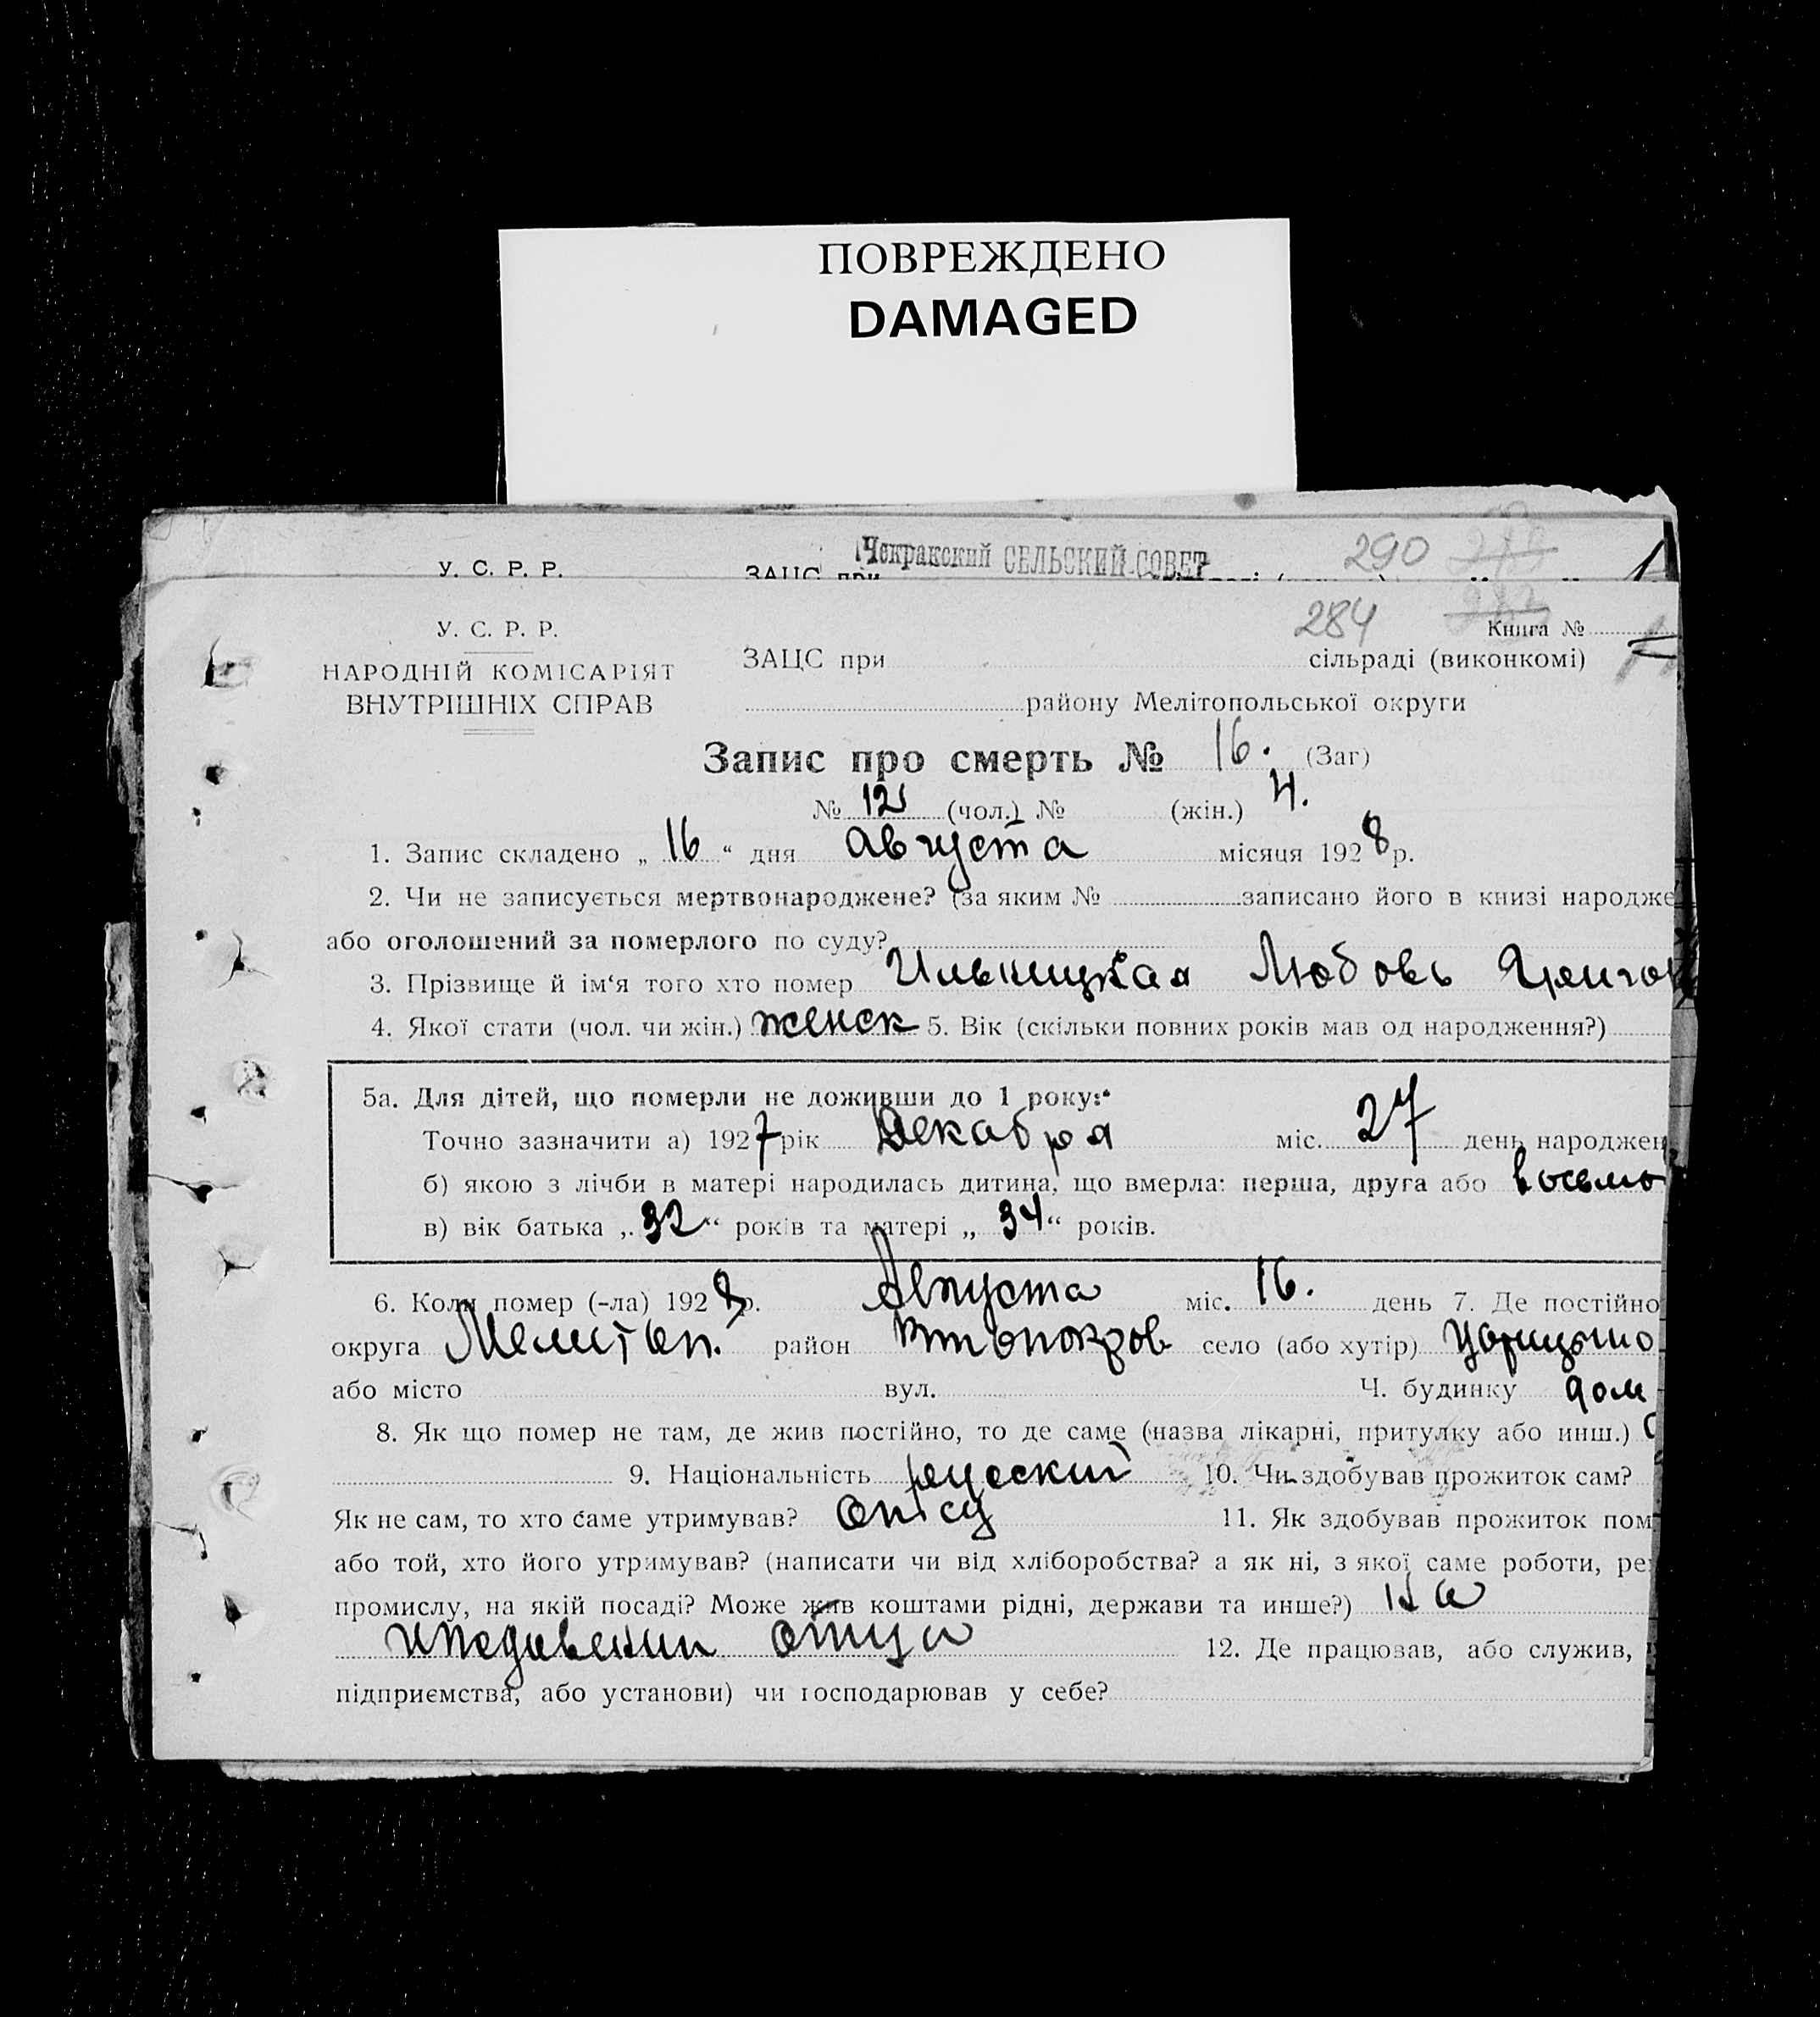 ПОВРЕЖДЕНО
DAMAGED
Чокракский СЕЛЬСКИЙ СОВЕТ
290
У. С. Р. Р. ЗАЦС при
284 Книга №
У. С. Р. Р.
ЗАЦС при сільраді (виконкомі)
НАРОДНІЙ КОМІСАРІЯТ
ВНУТРІШНІХ СПРАВ
району Мелітопольської округи
Запис про смерть № 16. (Заг)
№ 12 (чол.) № (жін.) 4.
1. Запис складено „ 16 “ дня августа місяця 1928 р.
2. Чи не записується мертвонароджене? (за яким № записано його в книзі народже
або оголошений за померлого по суду?
3. Прізвище й ім‘я того хто помер Ильницкая Любовь Григо
4. Якої стати (чол. чи жін.) женск 5. Вік (скільки повних років мав од народження?)
5а. Для дітей, що померли не доживши до 1 року:
Точно зазначити а) 1927 рік Декабря міс. 27 день народжен
б) якою з лічби в матері народилась дитина, що вмерла: перша, друга або восьмо
в) вік батька „ 32 “ років та матері „ 34 “ років.
6. Коли помер (-ла) 1928 р. Августа міс. 16. день 7. Де постійно
округа Мелитоп. район село (або хутір)
або місто вул. Ч. будинку дом
8. Як що помер не там, де жив постійно, то де саме (назва лікарні, притулку або инш.)
9. Національність русский 10. Чи здобував прожиток сам?
Як не сам, то хто саме утримував? отец 11. Як здобував прожиток пом
або той, хто його утримував? (написати чи від хліборобства? а як ні, з якої саме роботи, ре
промислу, на якій посаді? Може жив коштами рідні, держави та инше?) на
иждивении отца 12. Де працював, або служив,
підприємства, або установи) чи господарював у себе?